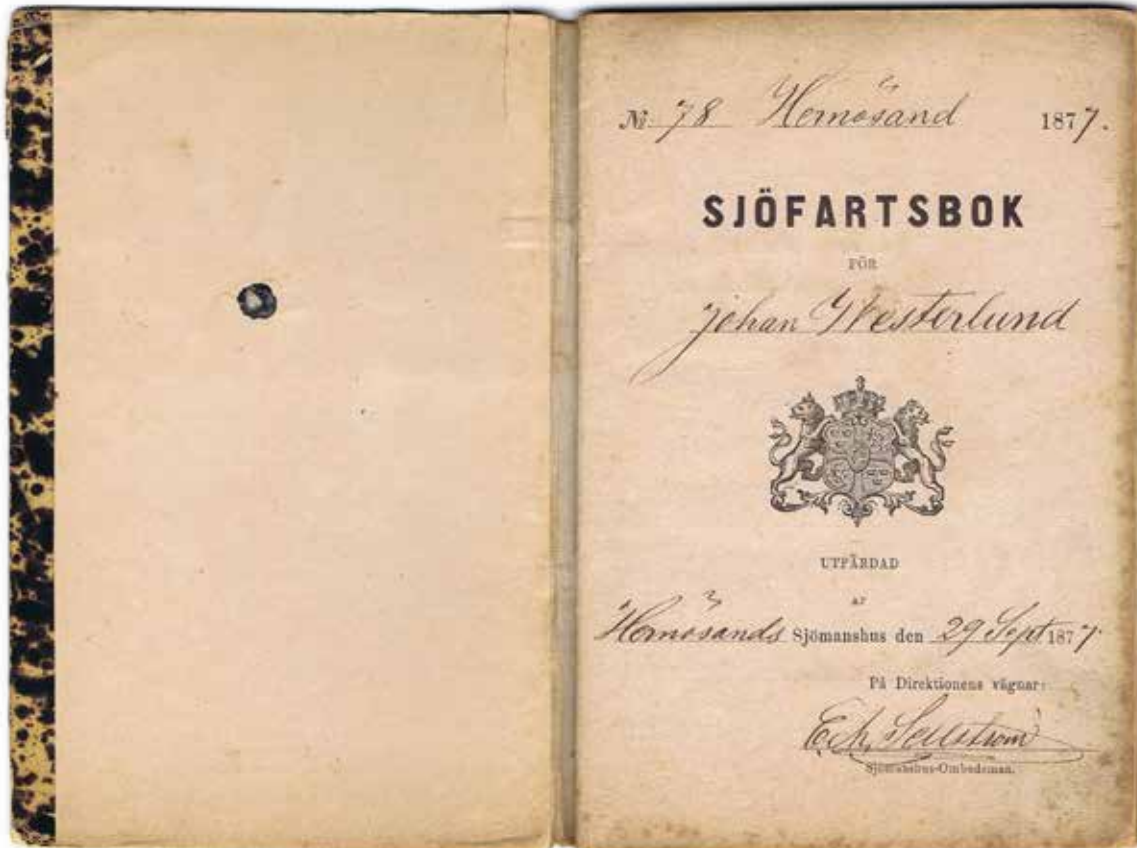 № 78 Hernösand 1877.
SJÖFARTSBOK
FÖR
Johan Westerlund
UTFÄRDAD
AF
Hernösands Sjömanshus den 29 Sept 1877
På Direktionens vägnar:
Sjömanshus-Ombudsman.